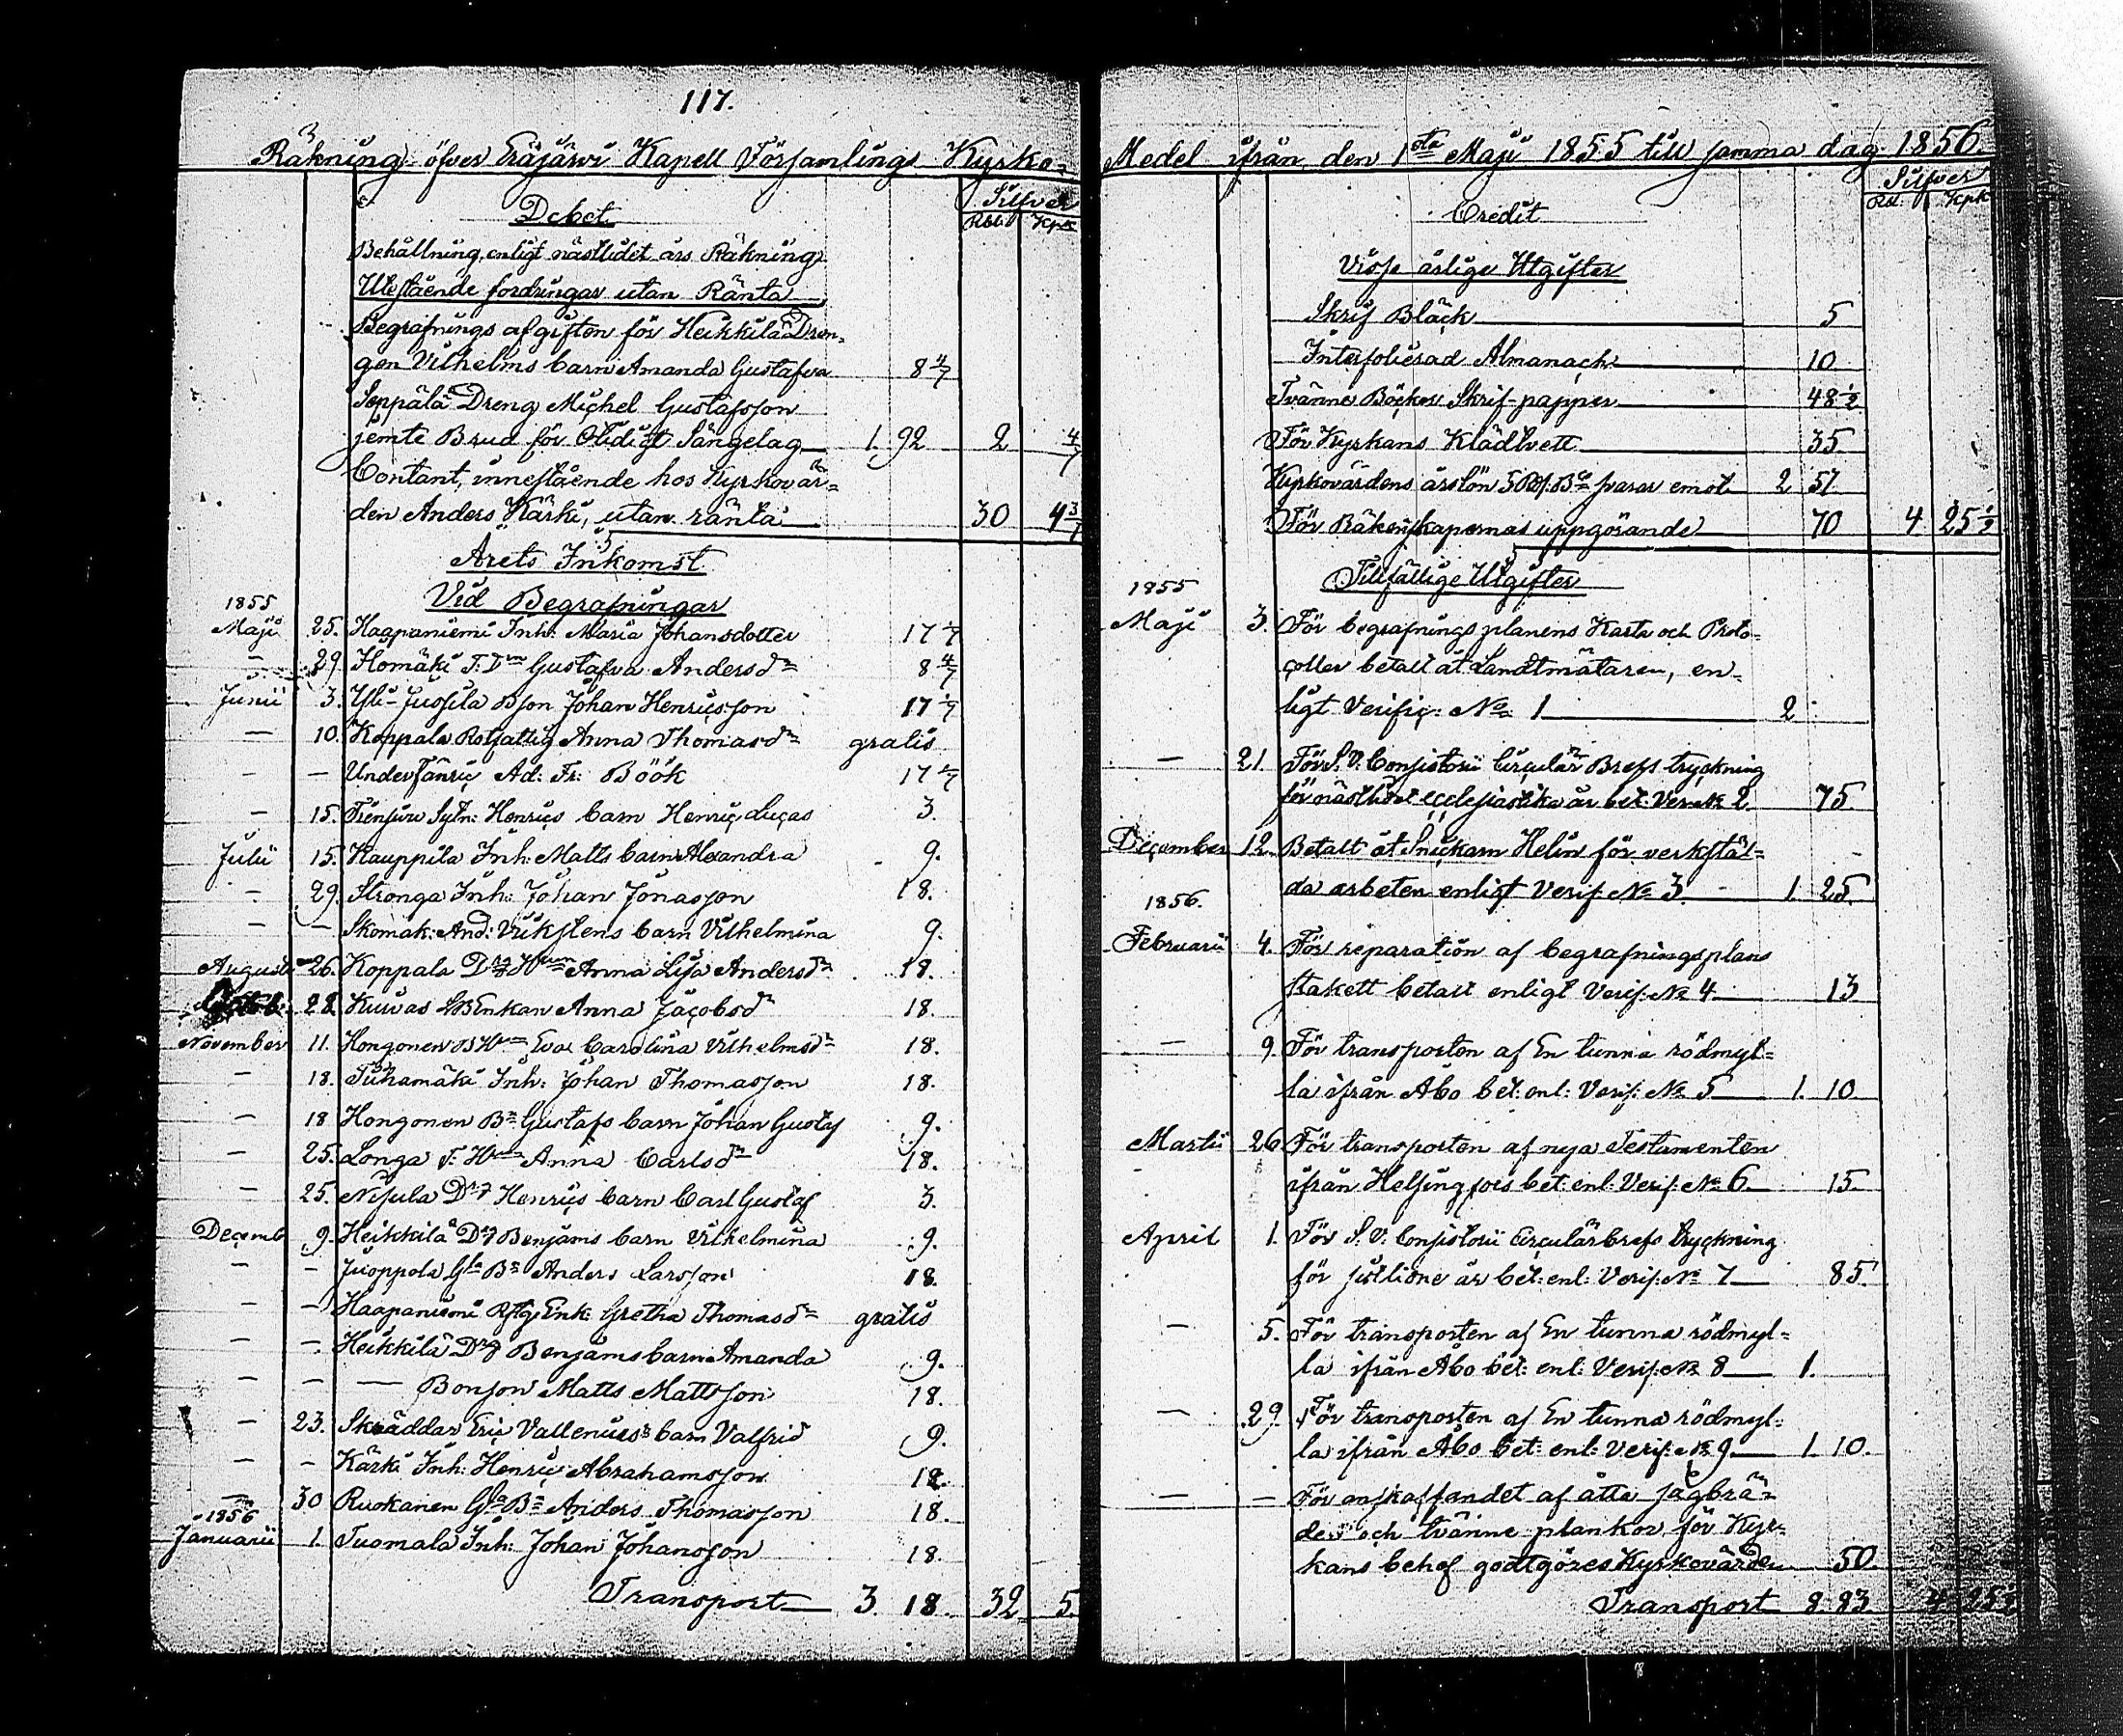 117.
Räkning öfver Eräjärvi Kapell Församlings Kyrko-
Debet
Silfver
Rbl: Kpk
Behållning, enligt nästlidet års Räkning
Utestående fordringar utan Ränta
Begrafnings afgiften för Heikkilä Dren-
gen Vilhelms barn Amanda Gustafva 8 4/7
Seppälä Dreng Michel Gustafsson
jemte Brud för Otidigt Sängelag 1. 92 2 4/7
Contant, innestående hos Kyrkovär=
den Anders Kärki, utan ränta 30 4 3/7
Årets Inkomst
Vid Begrafningar
1855
Maji 25. Haapaniemi Inh: Maria Johansdotter 17 1/7
— 29. Homäki T. Dn Gustafva Andersdr 8 4/7
Junii 3. Yli-Juusila Bson Johan Henricsson 17 1/7
— 10. Koppala Rotfattig Anna Thomasdr gratis
— — Underfänric Ad: Fr: Böök 17 1/7
— 15. Sytn: Henrics barn Henric Lucas 3.
Julii 15. Kauppila Inh: Matts barn Alexandra 9.
— 29. Stronga Inh: Johan Jonasson 18.
— — Skomak: And: Vikstens barn Vilhelmina 9.
August 26. Koppala Drg Hun Anna Lisa Andersdr 18.
28. Kuivas Enkan Anna Jacobsdr 18.
November 11. Hongonen B Hun Eva Carolina Vilhelmsdr 18.
— 18. Tuhamäki Inh: Johan Thomasson 18.
— 18 Hongonen Bn Gustafs barn Johan Gustaf 9.
— 25. Longa T. Hun Anna Carlsdr 18.
— 25. Nisula Drg Henrics barn Carl Gustaf 3.
Decemb 9. Heikkilä Drg Benjams barn Vilhelmina 9.
— — Juoppola Gla Bn Anders Larsson 18.
— — Haapaniemi Rftg Enk: Gretha Thomasdr gratis
— — Heikkilä Drg Benjams barn Amanda 9.
— — — Bonson Matts Mattsson 18.
— 23. Skräddar Eric Vallenius's barn Valfrid 9.
— — Kärki Inh: Henric Abrahamsson 18.
— 30 Ruokanen Gla Bn Anders Thomasson 18.
1856
Januarii 1. Tuomala Inh: Johan Johansson 18.
Transport 3. 18. 32 5.
Medel ifrån den 1sta Maji 1855 till samma dag 1856.
Credit
Silfver
Rbl: Kpk
Visse årlige Utgifter
Skrif Bläck 5
Interfolierad Almanach 10
Tvänne Böcker Skrif-papper 48 1/2
För Kyrkans Klädtvett 35.
Kyrkovärdens årslön 5 Rd. Bco svarar emot 2 57
För Räkenskapernas uppgörande 70 4 25 1/2
Tillfällige Utgifter
1855
Maji 3. För begrafnings planens Karta och Proto-
coller betalt åt Landtmätaren, en-
ligt Verific: No: 1 2
— 21. För S. V. Consistorii Circulär Brefs tryckning
för nästlidet ecclesiastika år bet: Ver. No 2. 75.
December 12. Betalt åt Snickarn Helin för verkstäl-
da arbeten enligt Verif: No 3. 1. 25.
1856.
Februarii 4. För reparation af begrafningsplans
stakett betalt enligt Verif: No 4 13
— 9. För transporten af En tunna rödmyl-
la ifrån Åbo bet: enl: Verif: No 5 1. 10
Martii 26 För transporten af nya Testamenten
ifrån Helsingfors bet: enl: Verif: No 6. 15.
April 1. För S. V. Consistorii Circulär brefs tryckning
för sistlidne år bet: enl: Verif: No 7 85.
— 5. För transporten af En tunna rödmyl-
la ifrån Åbo bet: enl: Verif: No 8 1.
— 29. För transporten af En tunna rödmyl-
la ifrån Åbo bet: enl: Verif: No 9. 1. 10.
— — För anskaffandet af åtta sågbrä-
der och tvänne plankor för Kyr-
kans behof godtgöres Kyrkovärden 50.
Transport 8. 83. 4 25 1/2